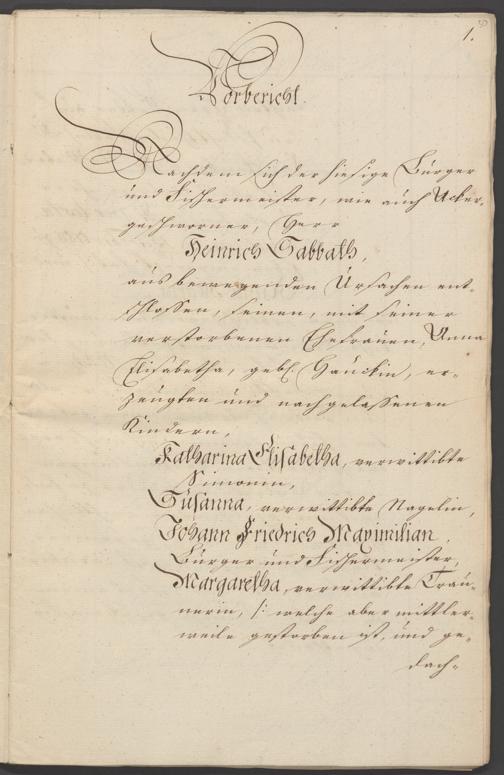 1.
Vorbericht.
Nachdem sich der hiesige Bürger
und Fischermeister, wie auch Acker-
geschworner, Herr
Heinrich Sabbath,
aus bewegenden Ursachen ent-
schlossen, seinen, mit seiner
verstorbenen Ehefrauen, Anna
Elisabetha, geb. Hauckin, er-
zeugten und nachgelassenen
Kindern,
Katharina Elisabetha, verwittibte
Simonin,
Susanna, verwittibte Nagelin,
Johann Friedrich Maximilian,
Bürger und Fischermeister,
Margaretha, verwittibte Trau-
nerin, /: welche aber mittler-
weile gestorben ist, und ge-
dach-